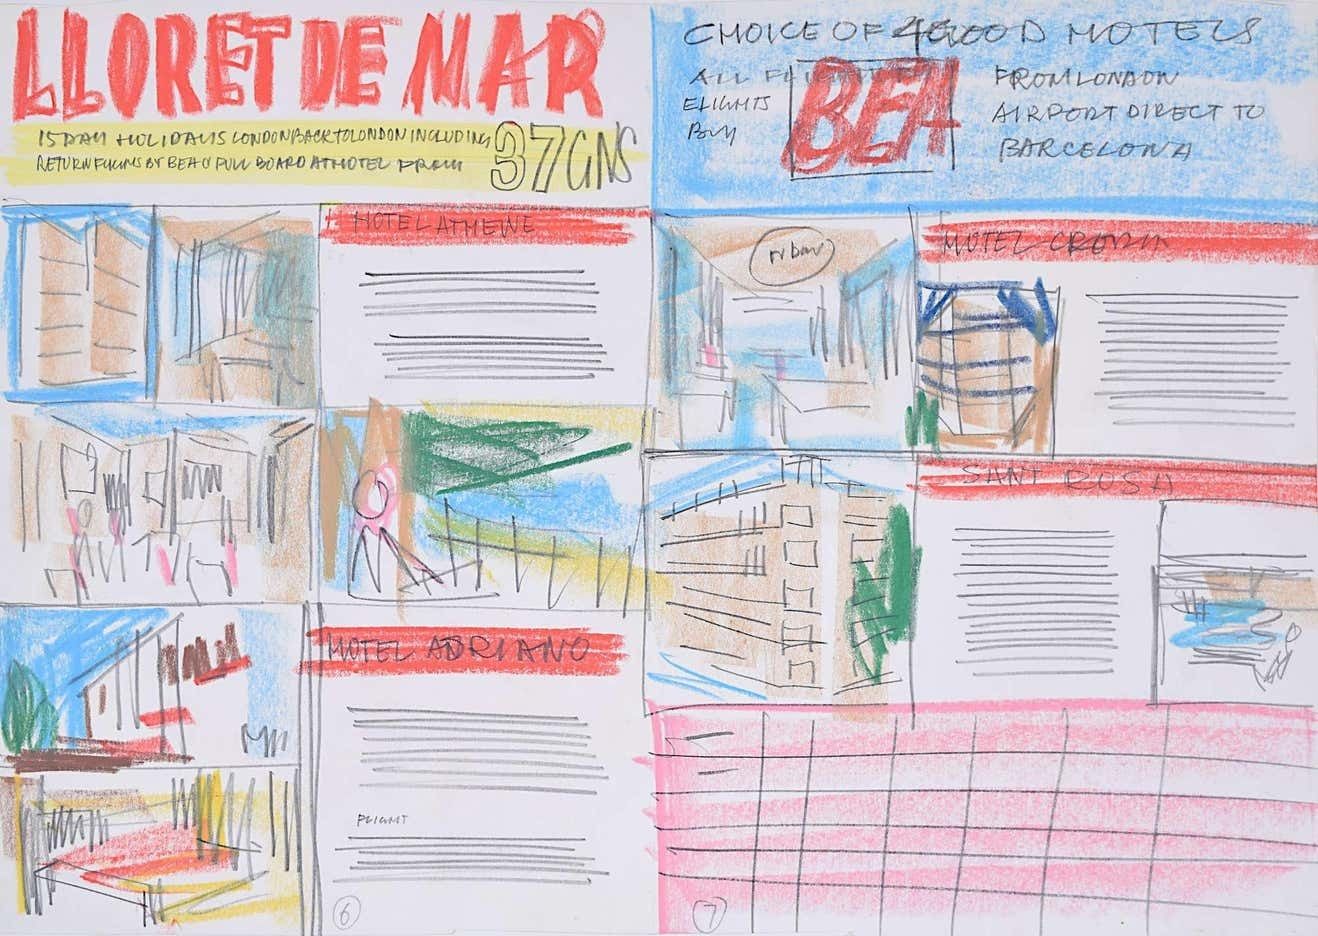 LLORET DE MAR
15 DAY HOLIDAYS LONDON BACK TO LONDON INCLUDING
RETURN FLIGHTS BY BEA & FULL BOARD AT HOTEL FROM
37 GNS
HOTEL ATHENE
HOTEL ADRIANO
FLIGHT
6
CHOICE OF 4 GOOD HOTELS
ALL
FLIGHTS
BUY
BEA
FROM LONDON
AIRPORT DIRECT TO
BARCELONA
bar
HOTEL
SANT ROSA
7